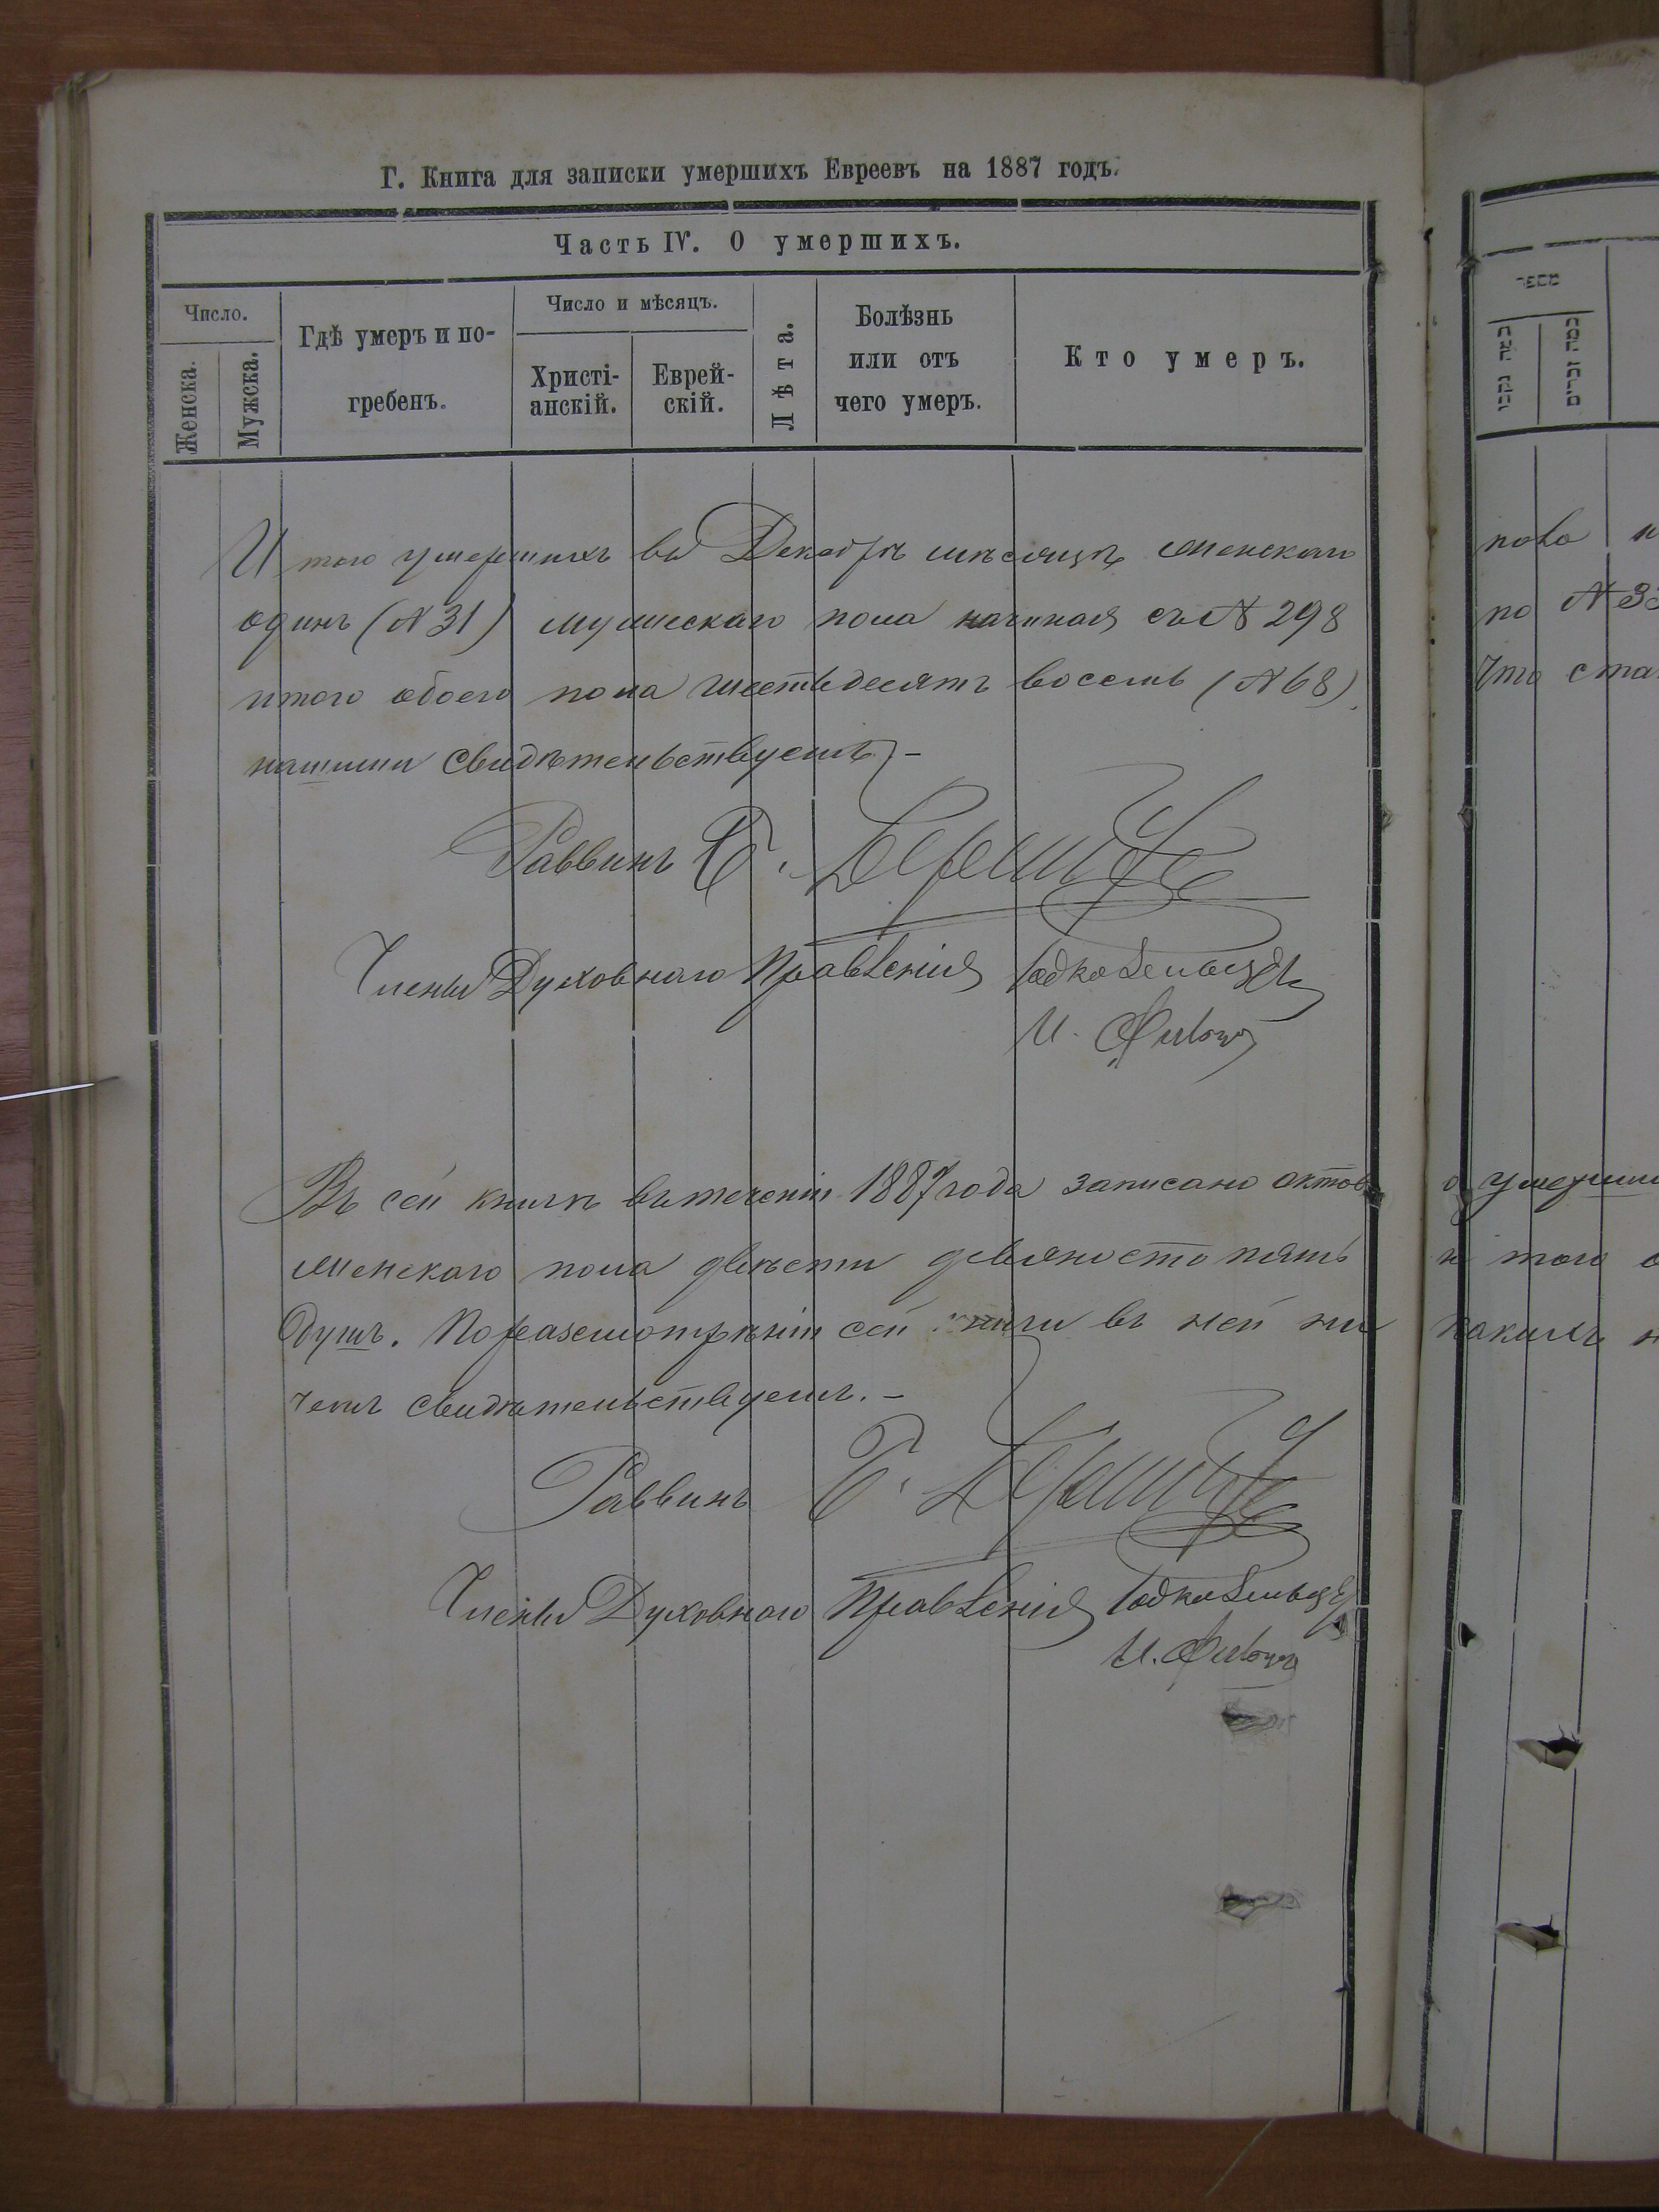 Г. Книга для записки умершихъ Евреевъ на 1887 годъ.
Часть IV. О умершихъ.
Число.
Женска.
Мужска.
Гдѣ умеръ и по-
гребенъ.
Число и мѣсяцъ.
Христі-
анскій.
Еврей-
скій.
Лѣта.
Болѣзнь
или отъ
чего умеръ.
Кто умеръ.
Итого умершихъ въ Декабрѣ мѣсяцѣ женскаго
одинъ (№ 31) мужескаго пола начиная съ № 298
итого обоего пола шестьдесятъ восемь (№ 68)
нашими свидѣтельствуемъ –
Раввинъ
Члены Духовнаго Правленія
Въ сей книгѣ въ теченіи 1887 года записано актов
женскаго пола двѣсти девяносто пять
душъ. По разсмотрѣніи сей книги въ ней ни
чемъ свидѣтельствуемъ. –
Раввинъ
Члены Духовнаго Правленія
מספר
пола
по №
Что
о умерши
и того
какихъ